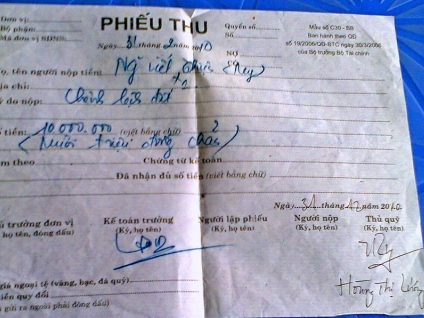 Đơn vị: PHIẾU THU Quyển số: Mẫu số C30 - BB
Bộ phận: Số: Ban hành theo QĐ
Mã đơn vị SDNS: Ngày 31 tháng 2 năm 10 số 19/2006/QĐ-BTC ngày 30/3/2006
NỢ của Bộ Tài chính
ọ, tên người nộp tiền:
ịa chỉ:
ý do nộp:
ố tiền: 10.000.000 (viết bằng chữ)
Mười triệu đồng chẵn
m theo Chứng từ kế toán
Đã nhận đủ số tiền (viết bằng chữ)
Ngày 31 tháng 12 năm 2010
ủ trưởng đơn vị Kế toán trưởng Người lập phiếu Người nộp Thủ quỹ
họ tên, đóng dấu) (Ký, họ tên) (Ký, họ tên) (Ký, họ tên) (Ký, họ tên)
Hoàng Thị
giá ngoại tệ (vàng, bạc, đá quý)
iền quy đổi
gửi ra ngoài phải đóng dấu)